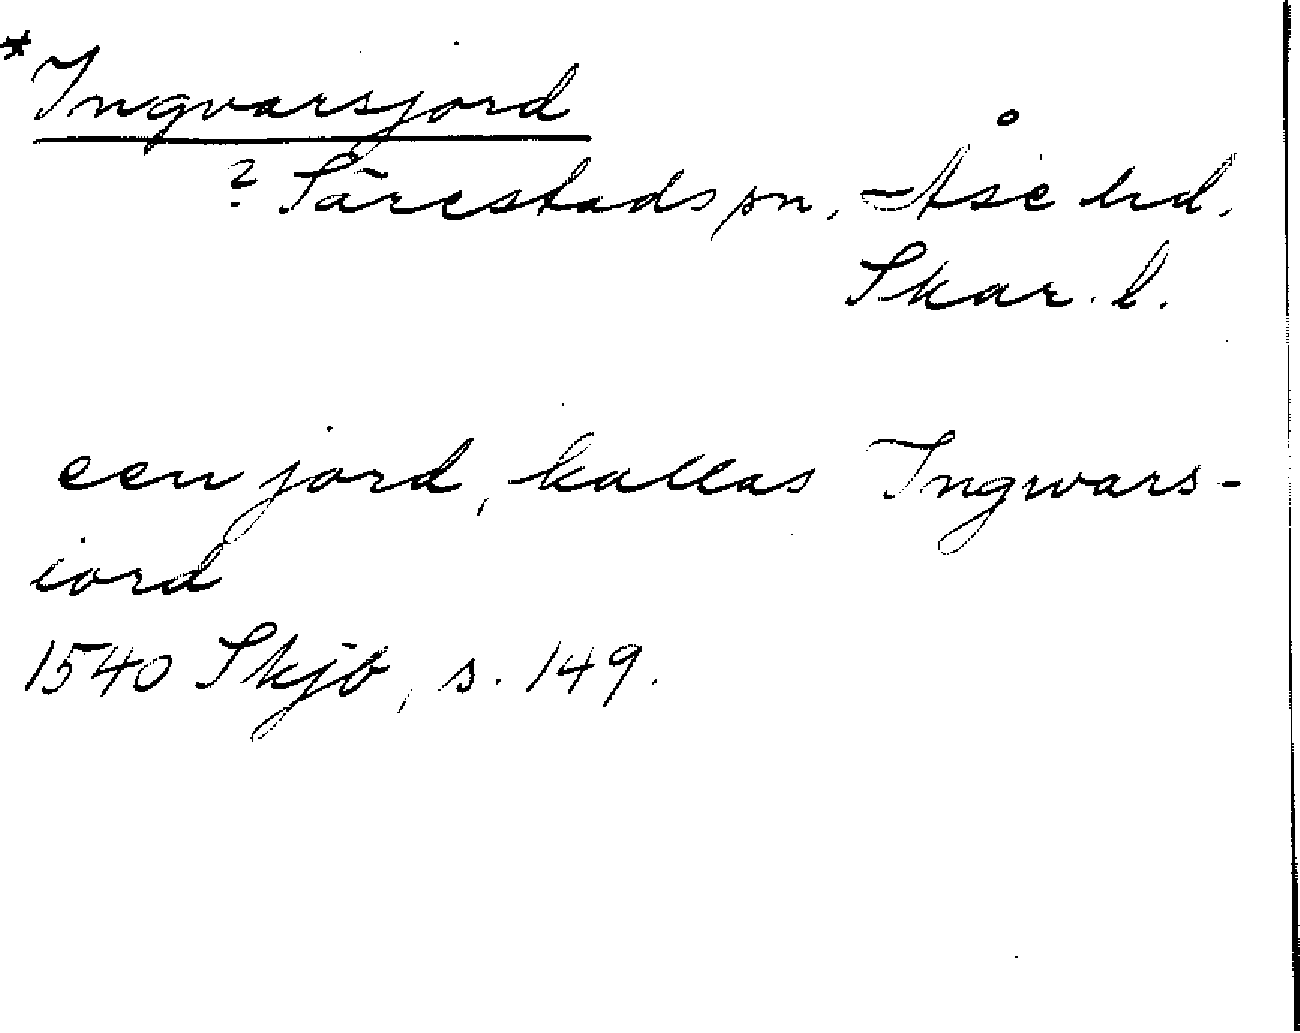 *Ingvarsjord
? Särestads sn, Åse hd.
Skar. l.
een jord, kallas Ingwars-
iord
1540 Skjb, s. 149.